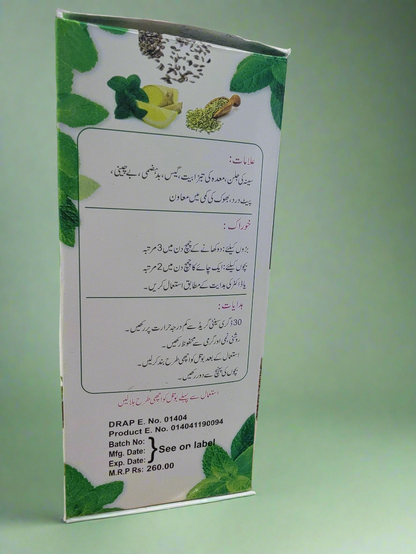 علامات:
سینہ کی جلن، معدہ کی تیزابیت، گیس، بدہضمی، بے چینی،
پیٹ درد، بھوک کی کمی میں معاون
خوراک:
بڑوں کیلئے: دو کھانے کے چمچ دن میں 3 مرتبہ
بچوں کیلئے: ایک چائے کا چمچ دن میں 2 مرتبہ
یا ڈاکٹر کی ہدایت کے مطابق استعمال کریں۔
ہدایات:
30 ڈگری سینٹی گریڈ سے کم درجہ حرارت پر رکھیں۔
روشنی، نمی اور گرمی سے محفوظ رکھیں۔
استعمال کے بعد بوتل کو اچھی طرح بند کر لیں۔
بچوں کی پہنچ سے دور رکھیں۔
استعمال سے پہلے بوتل کو اچھی طرح ہلا لیں
DRAP E. No. 01404
Product E. No. 014041190094
Batch No:
Mfg. Date: See on label
Exp. Date:
M.R.P Rs: 260.00